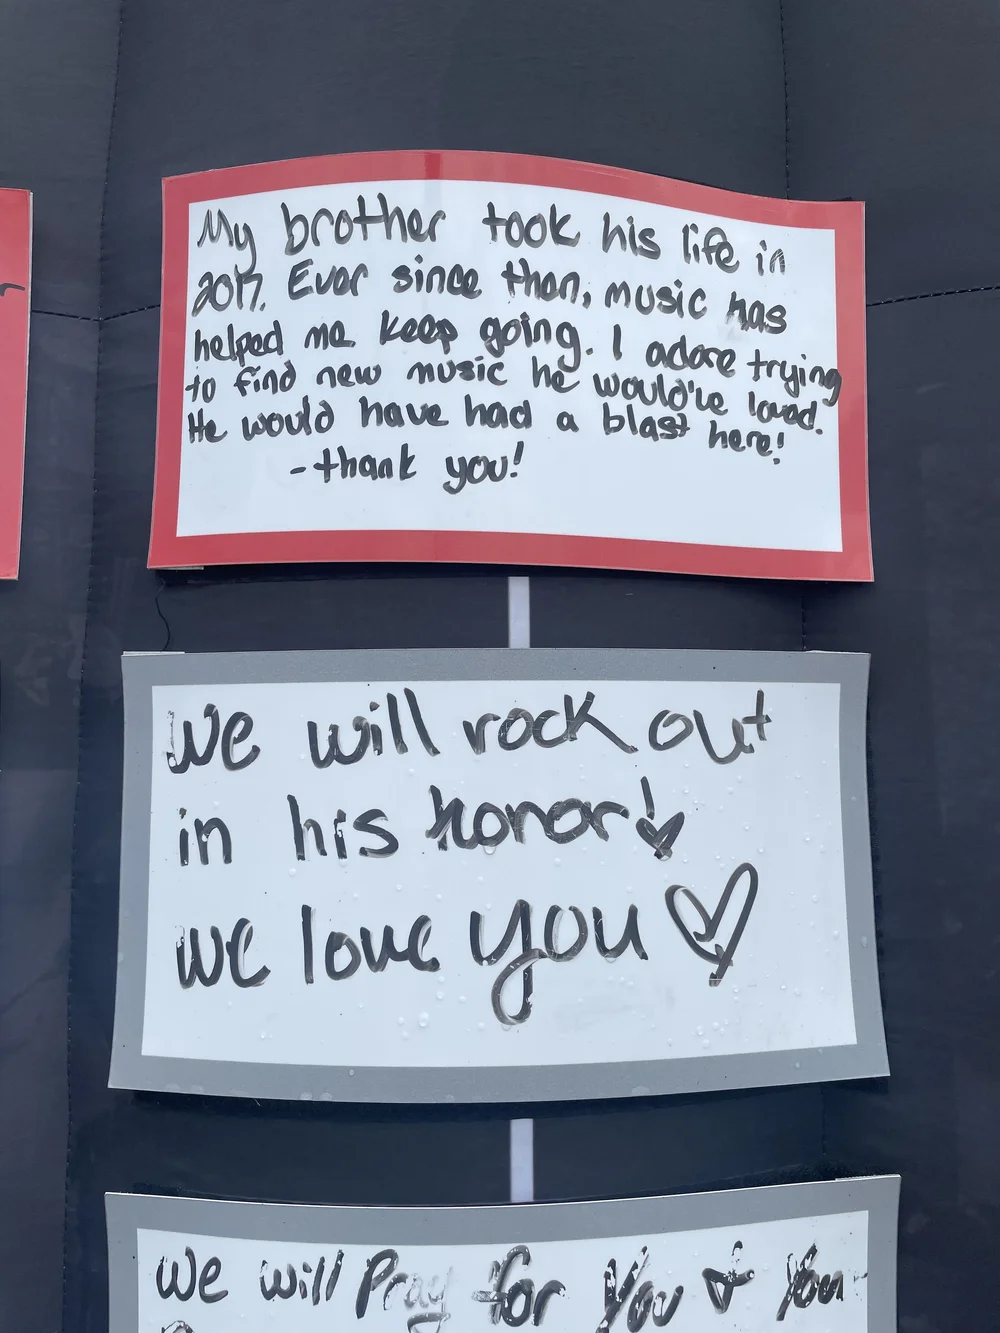 My brother took his life in
2017. Ever since then, music has
helped me keep going. I adore trying
to find new music he would've loved.
He would have had a blast here!
-thank you!
We will rock out
in his honor!♥
we love you ♡
We will Pray for You & You